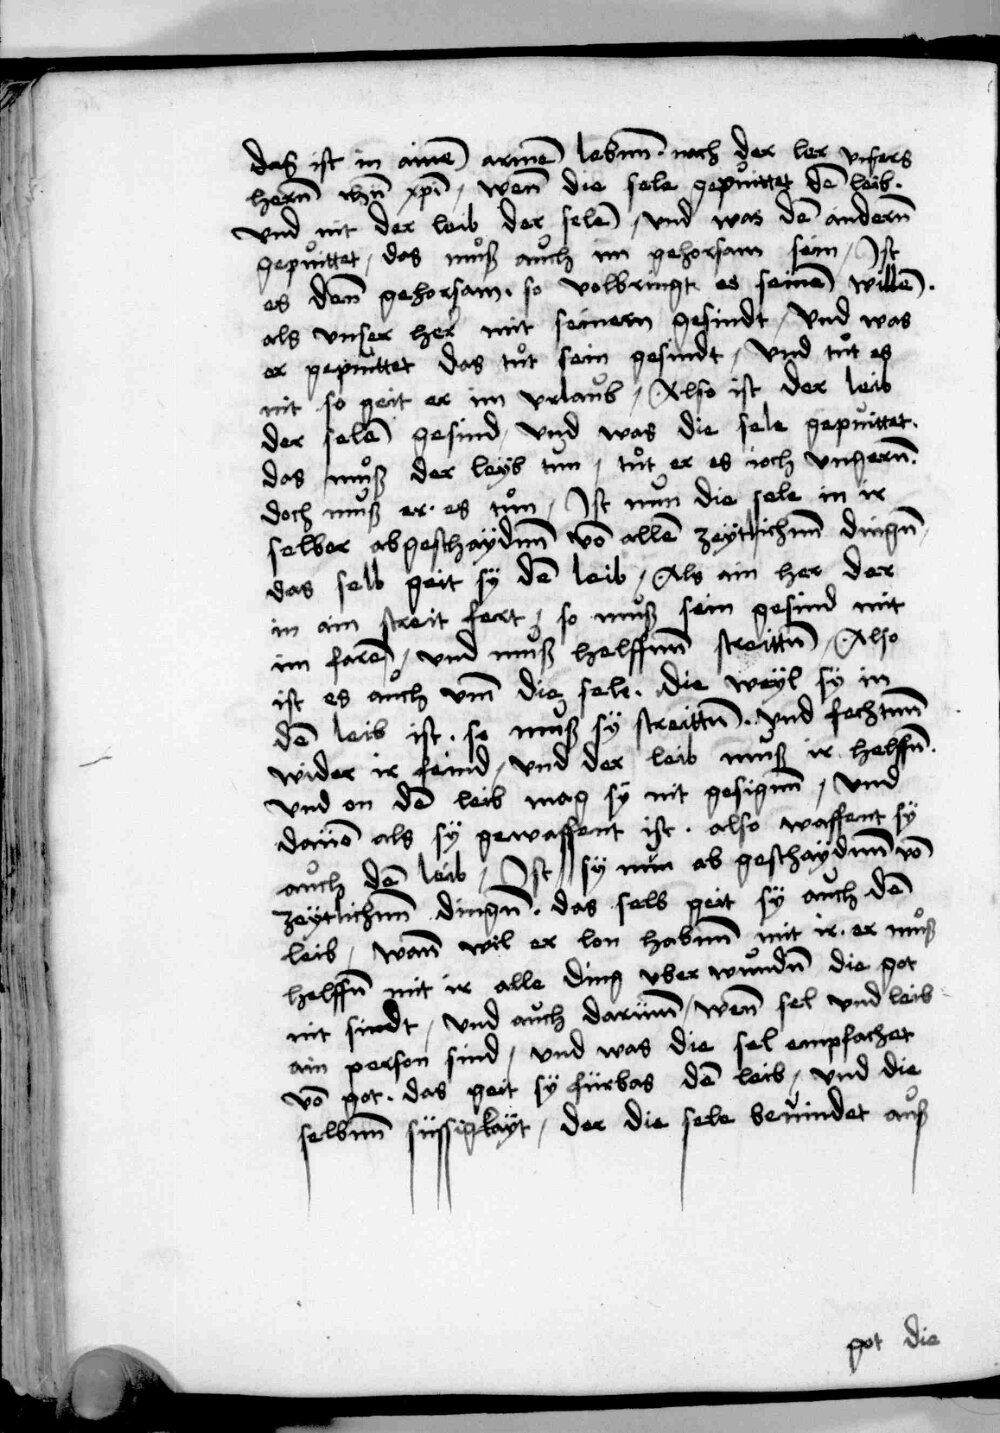 das ist in aimē armē lebnn̄. nach der ler vnsers
hern̄ ihū xpi, wen̄ die sele gepuͦittet dē leib.
vnd nit der leib der selē, vnd was dē andern̄
gepuͦittet, das muͦß auͦch im gehorsam sein, Ist
es den̄ gehorsam. so volbringt es seinē willē.
als vnser her mit seinem gesindt, vnd was
er gepuͦittet das tuͦt sein gesindt, vnd tuͦt es
nit so geit er im vrlauͦb, Also ist der leib
der selē gesind, vnd was die sele gepuͦittet.
das muͦß der leyb tuͦn, tuͦt er es ioch vngern̄.
doch muͦß er. es tuͦn, Ist nuͦn die sele in ir
selber abgeschaydnn̄ vō allē zeytlichnn̄ dingn̄,
das selb geit sÿ dē leib, Als ain her der
in ain streit fert, so muͦß sein gesind mit
im farē, vnd muͦß helffnn̄ streittn̄, Also
ist es auͦch vm̄ die sele. die weÿl sÿ in
dē leib ist. so muͦß sÿ streittn̄. vnd fechtnn̄
wider ir feind, vnd der leib muͦß ir helffn̄.
vnd on dē leib mag sÿ nit gesignn̄, vnd
dauō als sÿ gewaffent ist. also waffent sÿ
auͦch dē leib, Ist sÿ nuͦn ab geschaÿdnn̄ vō
zeÿtlichnn̄ dingn̄. das selb geit sÿ auͦch dē
leib, wan̄ wil er lon habnn̄ mit ir. er muͦß
helffn̄ mit ir alle ding vber wuͦndn̄ die got
nit sindt, vnd auͦch darüm̄, wen̄ sel vnd leib
ain person sind, vnd was die sel empfachet
vō got. das geit sÿ fürbas dē leib, vnd die
selbnn̄ süssigkaÿt, der die sele beuͦindet auͦß
got die